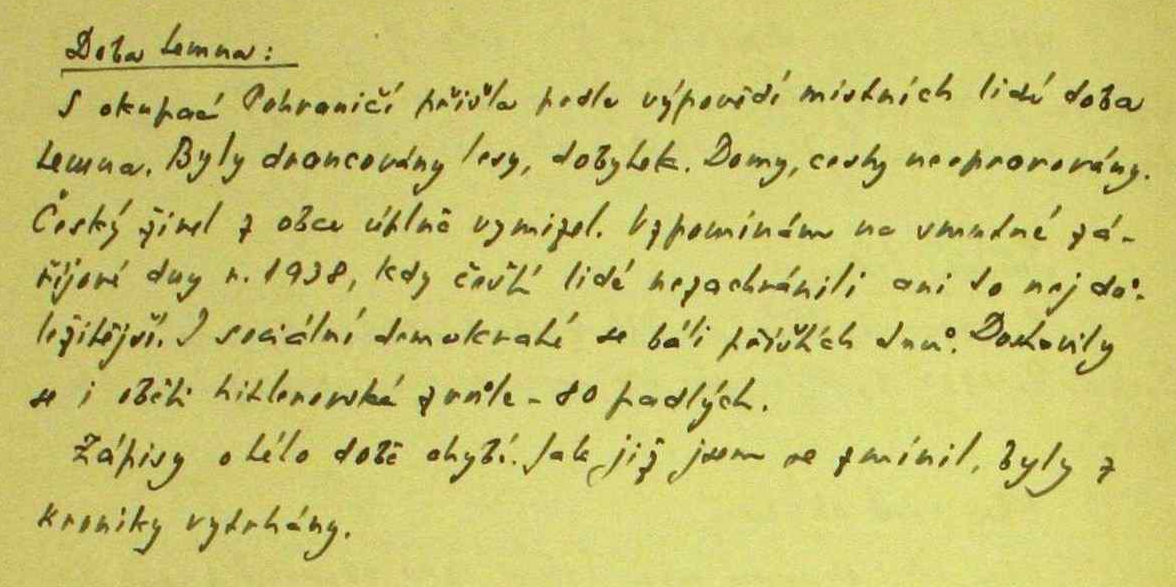 Doba temna:
S okupací Pohraničí přišla podle výpovědí místních lidí doba
temna. Byly drancovány lesy, dobytek. Domy, cesty neopravovány.
Český živel z obce úplně vymizel. Vzpomínám na smutné zá-
řijové dny r. 1938, kdy čeští lidé nezachránili ani to nejdů-
ležitější. I sociální demokraté se báli příštích dnů. Dostavily
se i oběti hitlerovské zvůle - 80 padlých.
Zápisy o této době chybí. Jak již jsem se zmínil, byly z
kroniky vytrhány.